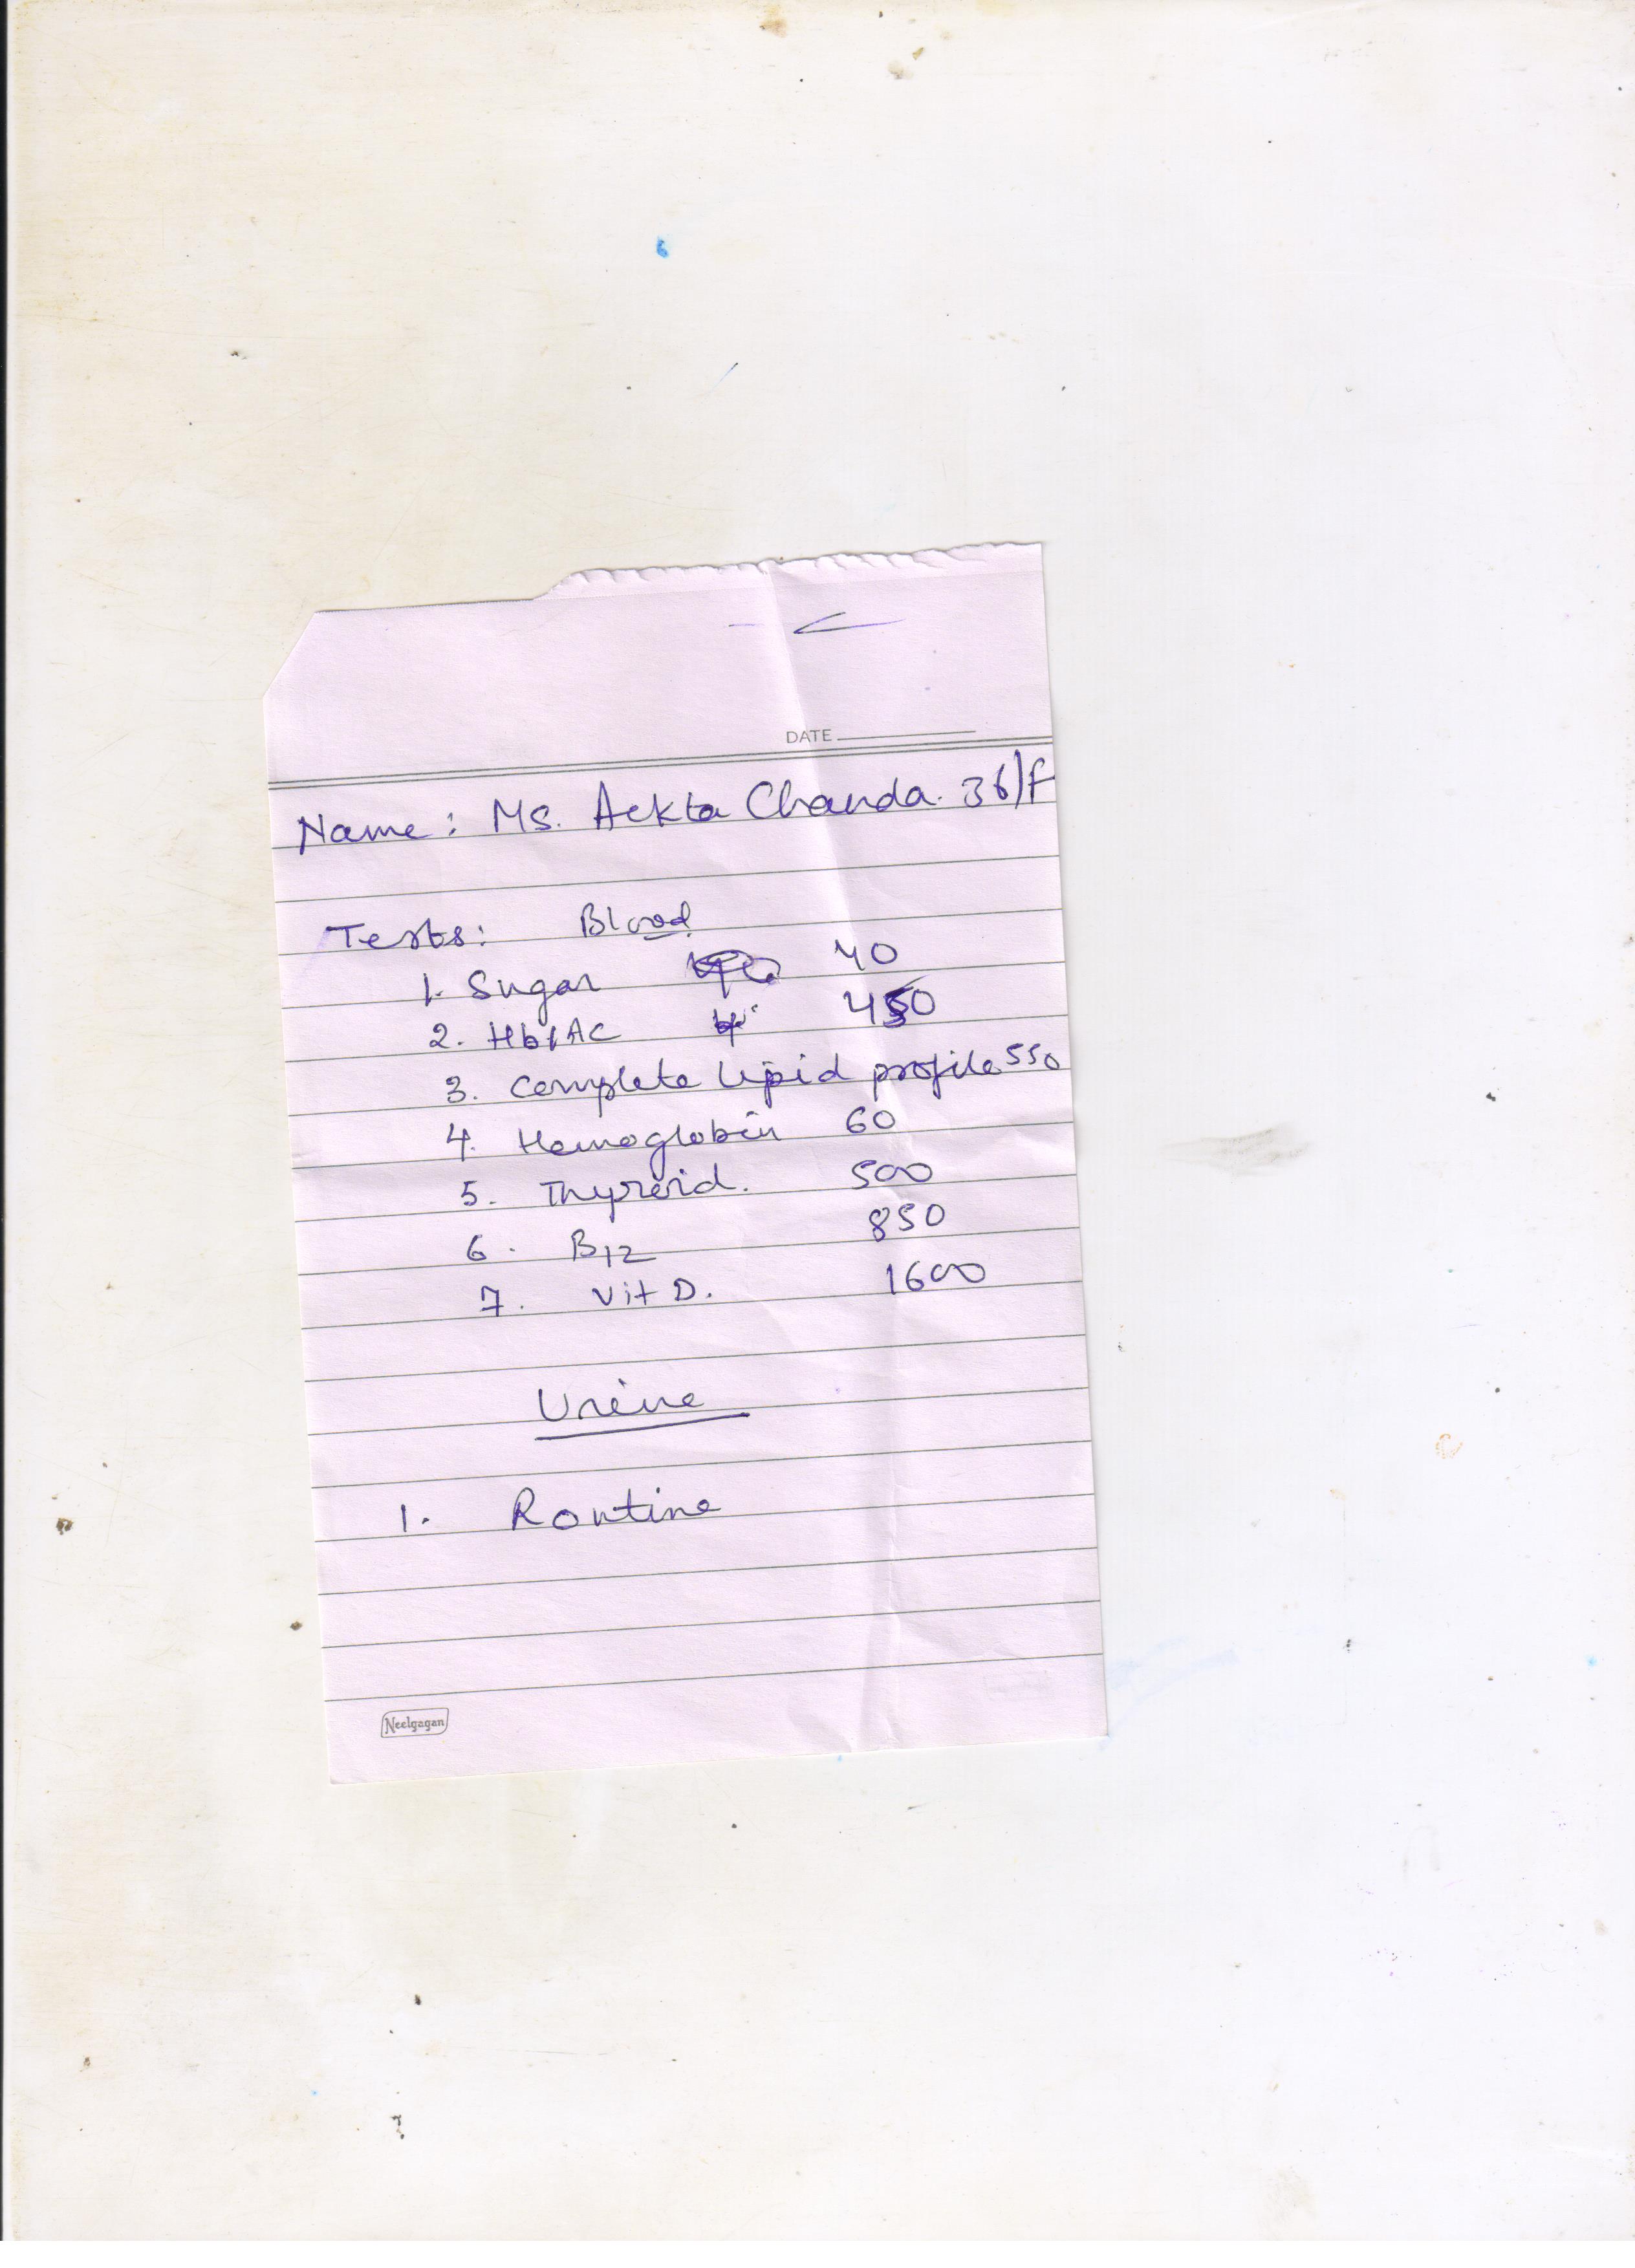 DATE
Name: Ms. Aekta Chanda. 36/F
Tests: Blood
1. Sugar 40
2. Hb1AC 450
3. Complete lipid profile 550
4. Hemoglobin 60
5. Thyroid. 500
6. B12 850
7. Vit D. 1600
Urine
1. Routine
Neelgagan